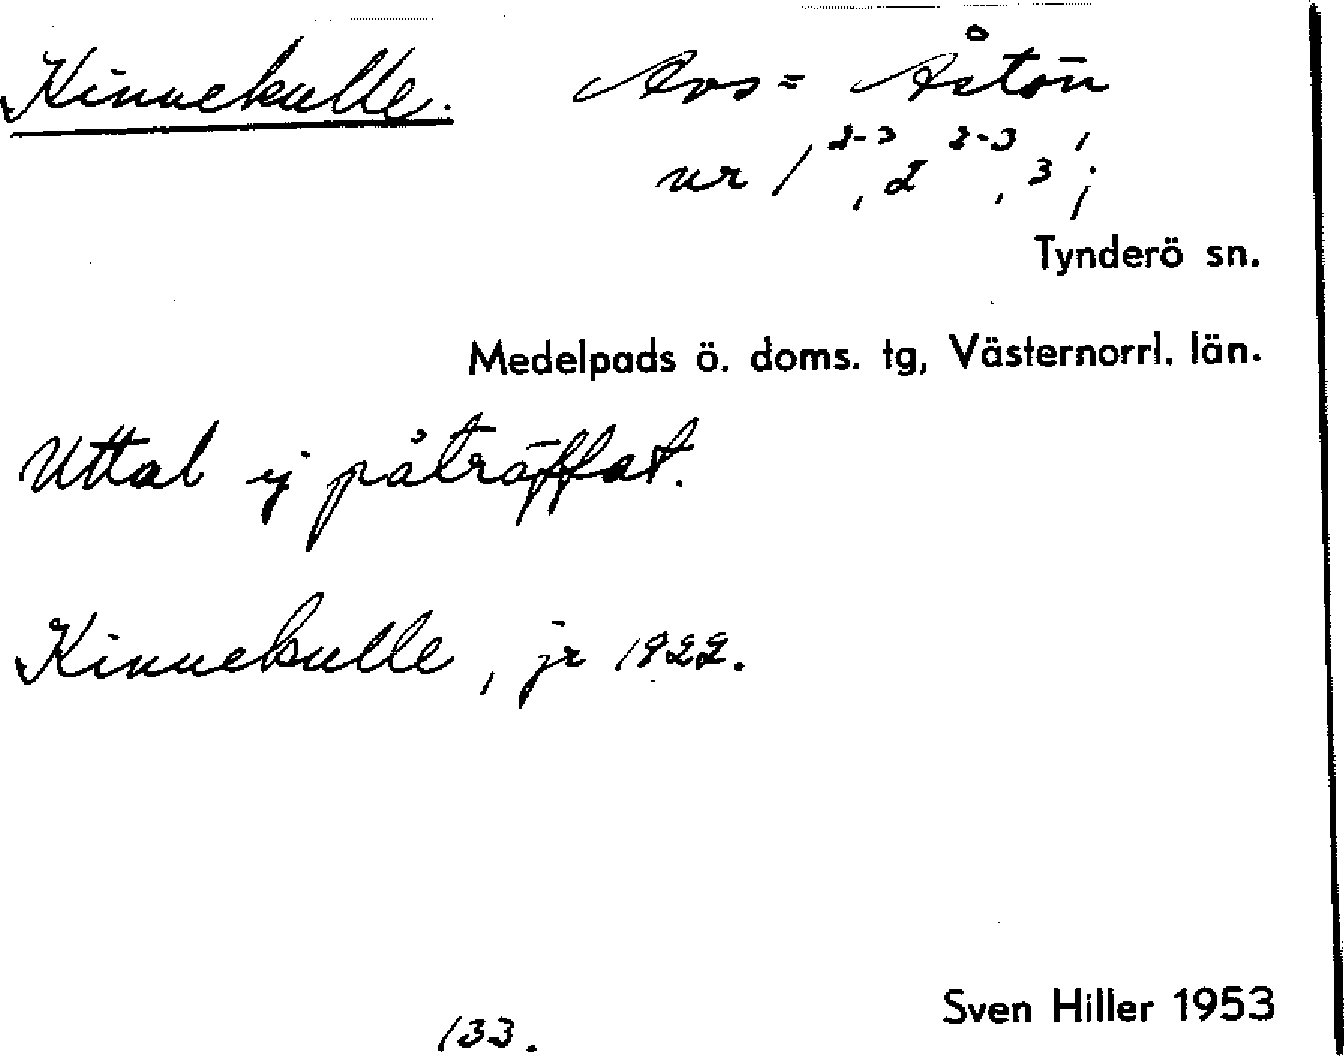 Kinnekulle. Avs = Åstön
nr 1²⁻³, 2²⁻³, 3¹;
Tynderö sn.
Medelpads ö. doms. tg, Västernorrl. län.
Uttal ej påträffat.
Kinnekulle, jr 1922.
Sven Hiller 1953
133.